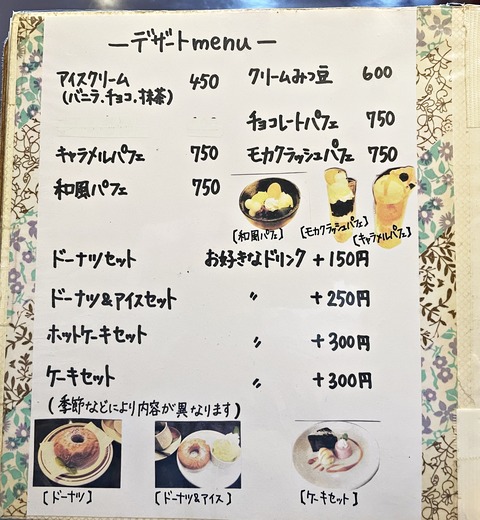 ーデザートmenuー
アイスクリーム 450 クリームみつ豆 600
(バニラ.チョコ.抹茶)
チョコレートパフェ 750
キャラメルパフェ 750 モカクラッシュパフェ 750
和風パフェ 750
[和風パフェ] [モカクラッシュパフェ] [キャラメルパフェ]
ドーナツセット お好きなドリンク +150円
ドーナツ&アイスセット 〃 +250円
ホットケーキセット 〃 +300円
ケーキセット 〃 +300円
(季節などにより内容が異なります)
[ドーナツ] [ドーナツ&アイス] [ケーキセット]